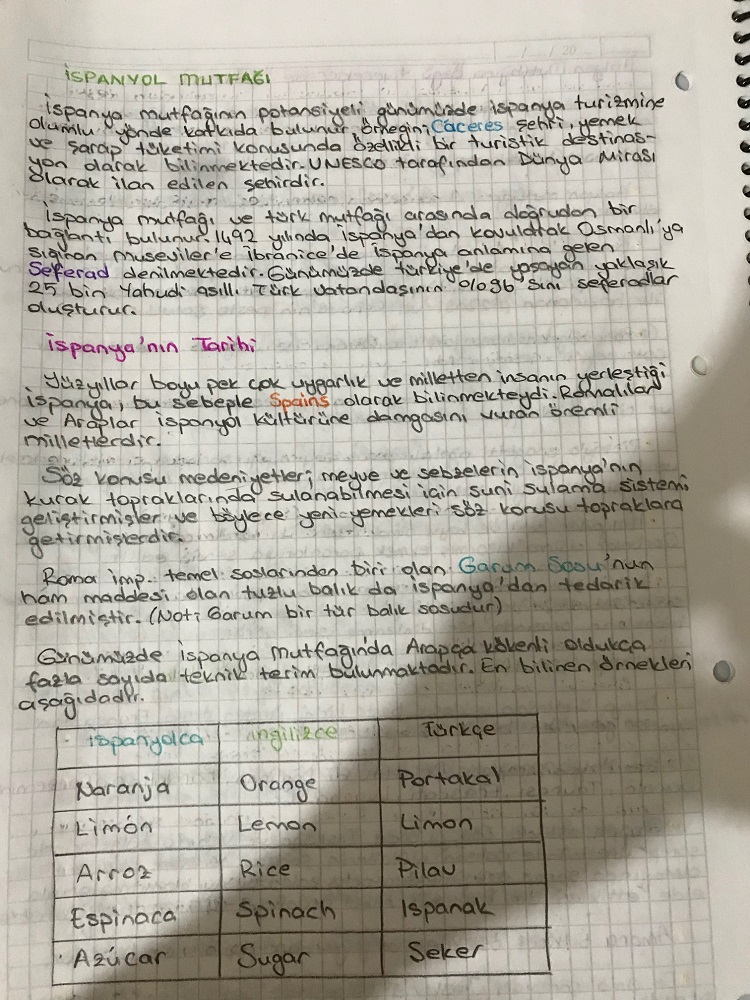 İSPANYOL MUTFAĞI
İspanya mutfağının potansiyeli günümüzde ispanya turizmine
olumlu yönde katkıda bulunur, örneğin; Cáceres şehri, yemek
ve şarap tüketimi konusunda özellikli bir turistik destinas-
yon olarak bilinmektedir. UNESCO tarafından Dünya Mirası
olarak ilan edilen şehirdir.
İspanya mutfağı ve türk mutfağı arasında doğrudan bir
bağlantı bulunur. 1492 yılında İspanya'dan kovularak Osmanlı'ya
sığınan museviler'e ibranice'de İspanya anlamına gelen
Seferad denilmektedir. Günümüzde türkiye'de yaşayan yaklaşık
25 bin Yahudi asıllı Türk vatandaşının %96'sını seferadlar
oluşturur.
İspanya'nın Tarihi
Yüzyıllar boyu pek çok uygarlık ve milletten insanın yerleştiği
İspanya, bu sebeple Spains olarak bilinmekteydi. Romalılar
ve Araplar ispanyol kültürüne damgasını vuran önemli
milletlerdir.
Söz konusu medeniyetler; meyve ve sebzelerin ispanya'nın
kurak topraklarında sulanabilmesi için suni sulama sistemi
geliştirmişler ve böylece yeni yemekleri söz konusu topraklara
getirmişlerdir.
Roma imp. temel soslarından biri olan Garum Sosu'nun
ham maddesi olan tuzlu balık da ispanya'dan tedarik
edilmiştir. (Not: Garum bir tür balık sosudur)
Günümüzde İspanya mutfağında Arapça kökenli oldukça
fazla sayıda teknik terim bulunmaktadır. En bilinen örnekleri
aşağıdadır.
ispanyolca ingilizce Türkçe
Naranja Orange Portakal
Limón Lemon Limon
Arroz Rice Pilav
Espinaca Spinach Ispanak
Azúcar Sugar Seker